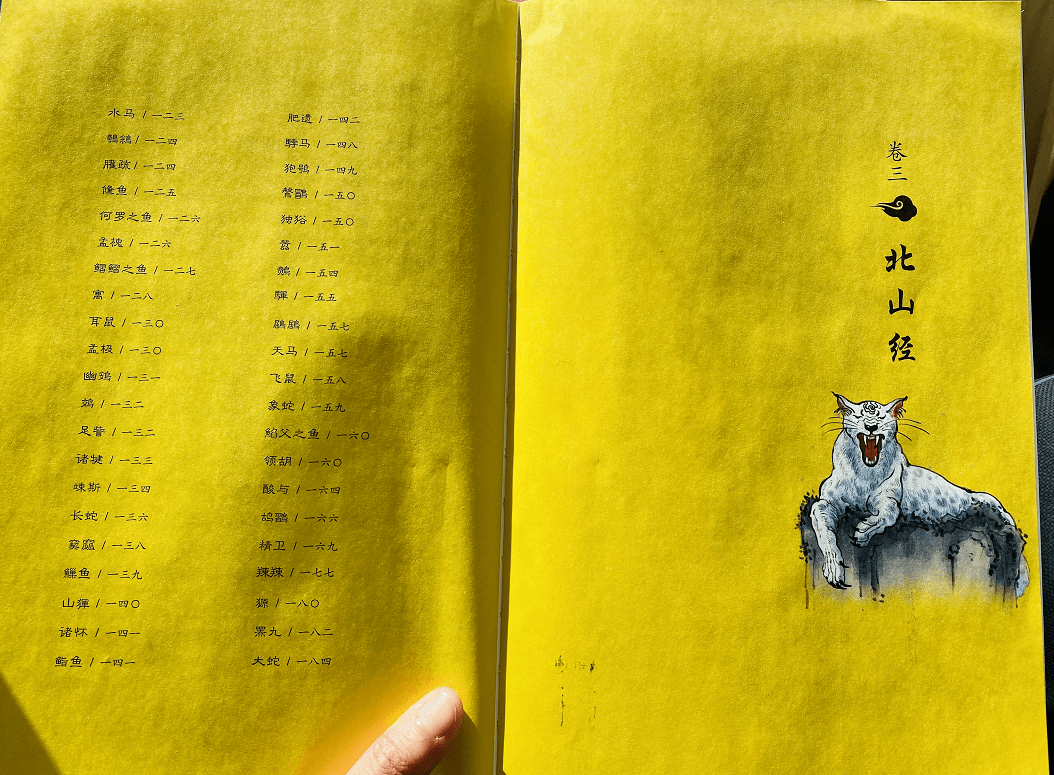 水马 / 一二三
鵸鵌 / 一二四
疏 / 一二四
鯈鱼 / 一二五
何罗之鱼 / 一二六
孟槐 / 一二六
鳛鳛之鱼 / 一二七
寓 / 一二八
耳鼠 / 一三〇
孟极 / 一三〇
幽鴳 / 一三一
/ 一三二
足訾 / 一三二
诸犍 / 一三三
竦斯 / 一三四
长蛇 / 一三六
窫窳 / 一三八
鱼 / 一三九
山𤟤 / 一四〇
诸怀 / 一四一
鮨鱼 / 一四一
肥遗 / 一四二
马 / 一四八
狍鸮 / 一四九
/ 一五〇
独𤞞 / 一五〇
嚣 / 一五一
/ 一五四
/ 一五五
鶌鶋 / 一五七
天马 / 一五七
飞鼠 / 一五八
象蛇 / 一五九
父之鱼 / 一六〇
领胡 / 一六〇
酸与 / 一六四
/ 一六六
精卫 / 一六九
辣辣 / 一七七
獂 / 一八〇
罴九 / 一八二
大蛇 / 一八四
卷三
北山经